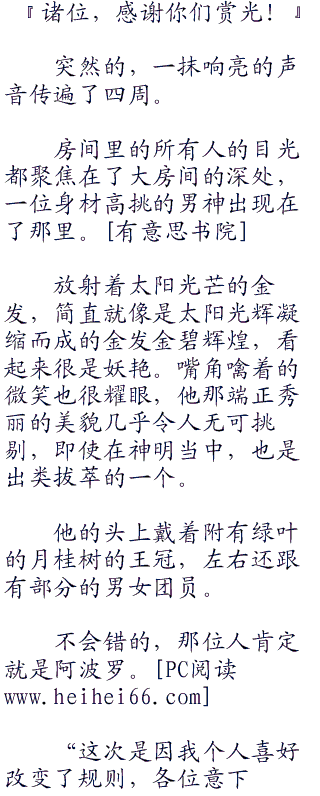 『诸位，感谢你们赏光！』
突然的，一抹响亮的声
音传遍了四周。
房间里的所有人的目光
都聚焦在了大房间的深处，
一位身材高挑的男神出现在
了那里。[有意思书院]
放射着太阳光芒的金
发，简直就像是太阳光辉凝
缩而成的金发金碧辉煌，看
起来很是妖艳。嘴角噙着的
微笑也很耀眼，他那端正秀
丽的美貌几乎令人无可挑
剔，即使在神明当中，也是
出类拔萃的一个。
他的头上戴着附有绿叶
的月桂树的王冠，左右还跟
有部分的男女团员。
不会错的，那位人肯定
就是阿波罗。[PC阅读
www.heihei66.com]
“这次是因我个人喜好
改变了规则，各位意下